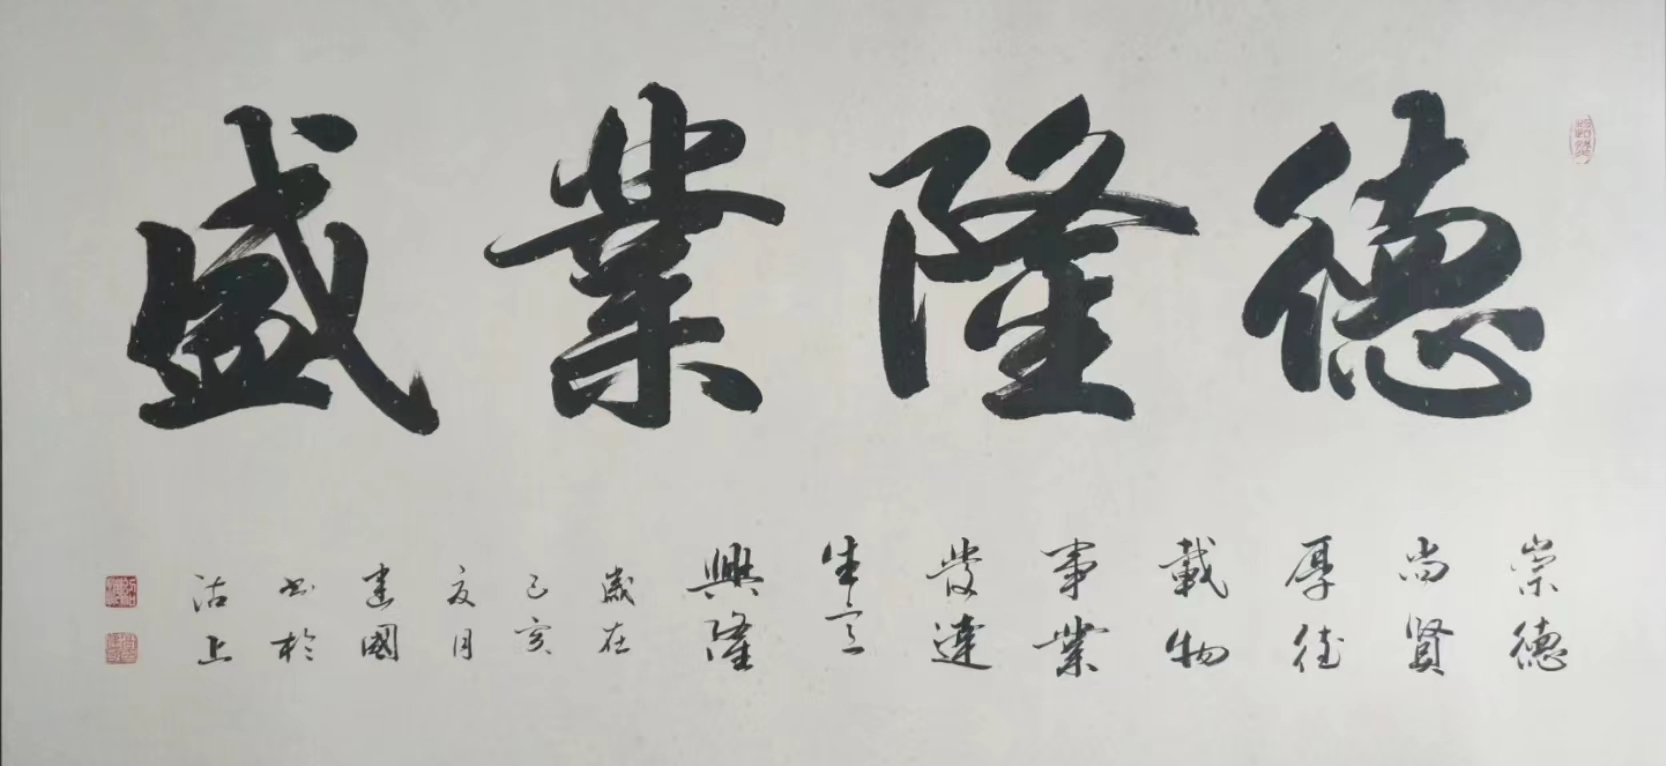 德隆業盛
崇德
尚賢
厚德
載物
事業
發達
生意
興隆
歲在
己亥
夏月
建國
書於
沽上